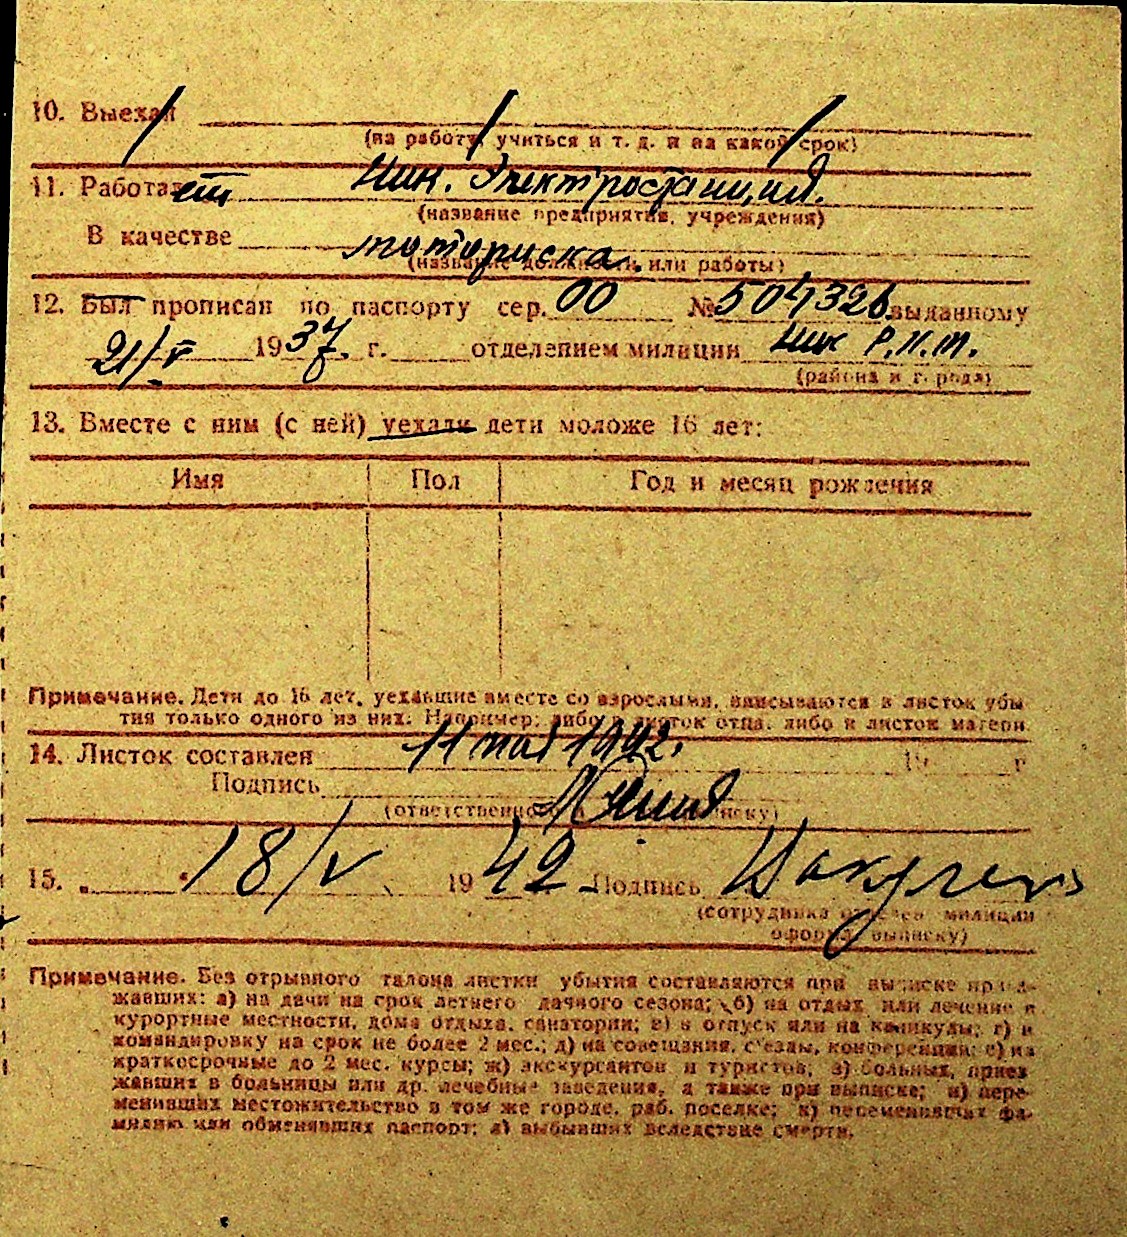 10. Выехал
(на работу, учиться и т. д. и на какой срок)
11. Работает Ник. Электростанция.
(название предприятия, учреждения)
В качестве моториска.
(название должности или работы)
12. Был прописан по паспорту сер. 00 № 504326 выданному
21/V 1937 г. отделением милиции Ник Р.К.М.
(района и города)
13. Вместе с ним (с ней) уехали дети моложе 16 лет:
Имя Пол Год и месяц рождения
Примечание. Дети до 16 лет, уехавшие вместе со взрослыми, вписываются в листок убы
тия только одного из них. Например: либо в листок отца, либо в листок матери
14. Листок составлен 11 мая 1942. 19 г
Подпись
(ответственного выписку)
15. „ " 18/V 1942 Подпись
(сотрудника отделен милиции
оформ. выписку)
Примечание. Без отрывного талона листки убытия составляются при выписке приез-
жавших: а) на дачи на срок летнего дачного сезона; б) на отдых или лечение в
курортные местности, дома отдыха, санатории; в) в отпуск или на каникулы; г) в
командировку на срок не более 2 мес.; д) на совещания, съезды, конференции; е) на
краткосрочные до 2 мес. курсы; ж) экскурсантов и туристов; з) больных, приез
жавших в больницы или др. лечебные заведения, а также при выписке; и) пере-
менивших местожительство в том же городе, раб. поселке; к) переменивших фа-
милию или обменявших паспорт; л) выбывших вследствие смерти.